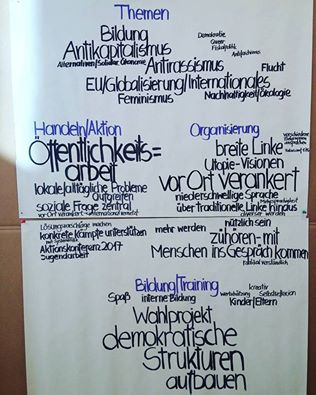 Themen
Bildung
Demokratie
Antikapitalismus
Queer
Fiskalpolitik
Antifaschismus
Alternativen/Solidar. Ökonomie
Antirassismus
Flucht
EU/Globalisierung/Internationales
Feminismus
Nachhaltigkeit/Ökologie
Handeln/Aktion
Öffentlichkeits=
arbeit
lokale/alltägliche Probleme
aufgreifen
soziale Frage zentral
vor Ort verankert - international vernetzt
Lösungsvorschläge machen
konkrete Kämpfe unterstützen
Aktionskonferenz 2017
Jugendarbeit
Organisierung
breite Linke
Utopie-Visionen
vor Ort verankert
niederschwellige Sprache
über traditionelle Linke hinaus
diverser werden
mehr werden
nützlich sein
zuhören - mit
Menschen ins Gespräch kommen
radikal verständlich
Bildung/Training
Spaß
interne Bildung
Wertschätzung
kreativ
Selbstreflexion
Kinder/Eltern
Wahlprojekt
demokratische
Strukturen
aufbauen